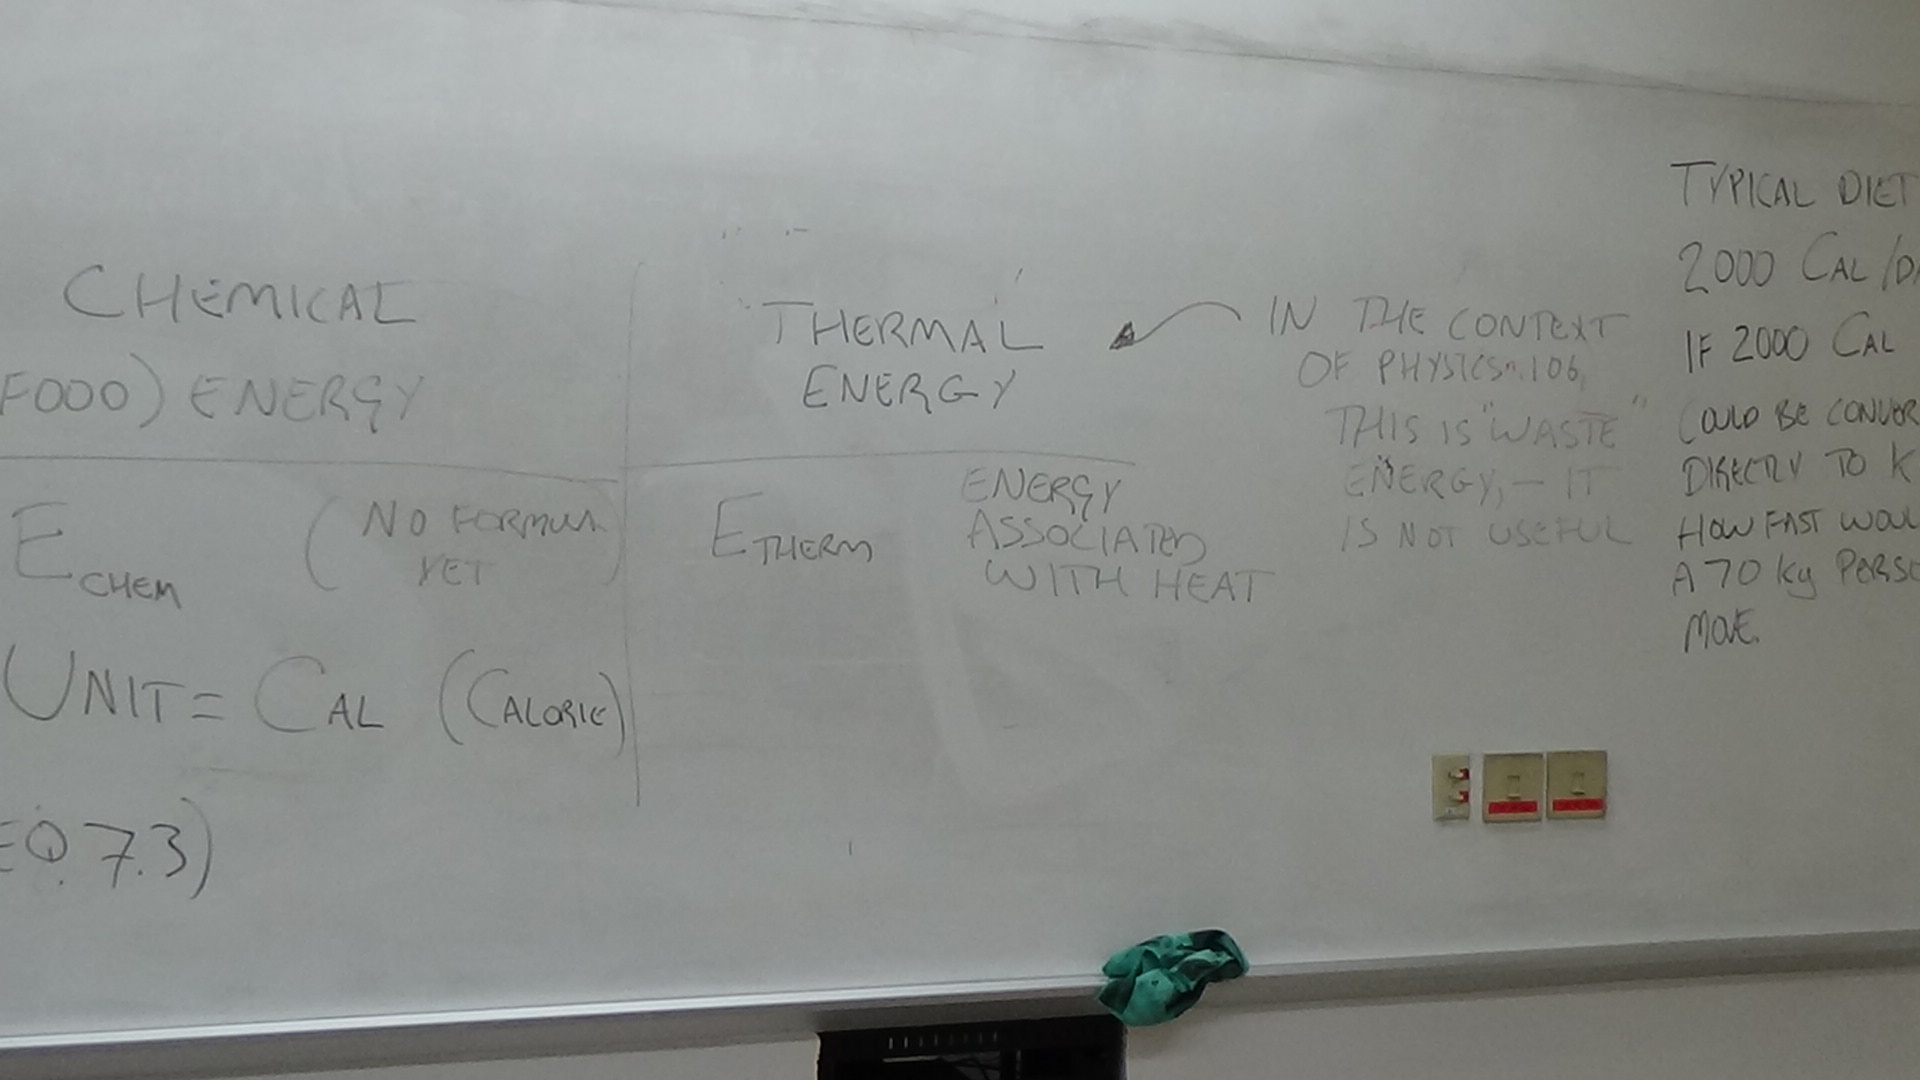 CHEMICAL
FOOD) ENERGY
E CHEM (NO FORMULA
YET)
UNIT = CAL (CALORIE)
EQ. 7.3)
THERMAL
ENERGY
E THERM
ENERGY
ASSOCIATED
WITH HEAT
IN THE CONTEXT
OF PHYSICS 106,
THIS IS "WASTE"
ENERGY, - IT
IS NOT USEFUL
TYPICAL DIET
2000 CAL/DA
IF 2000 CAL
COULD BE CONVER
DIRECTLY TO K
HOW FAST WOUL
A 70 kg PERSO
MOVE.